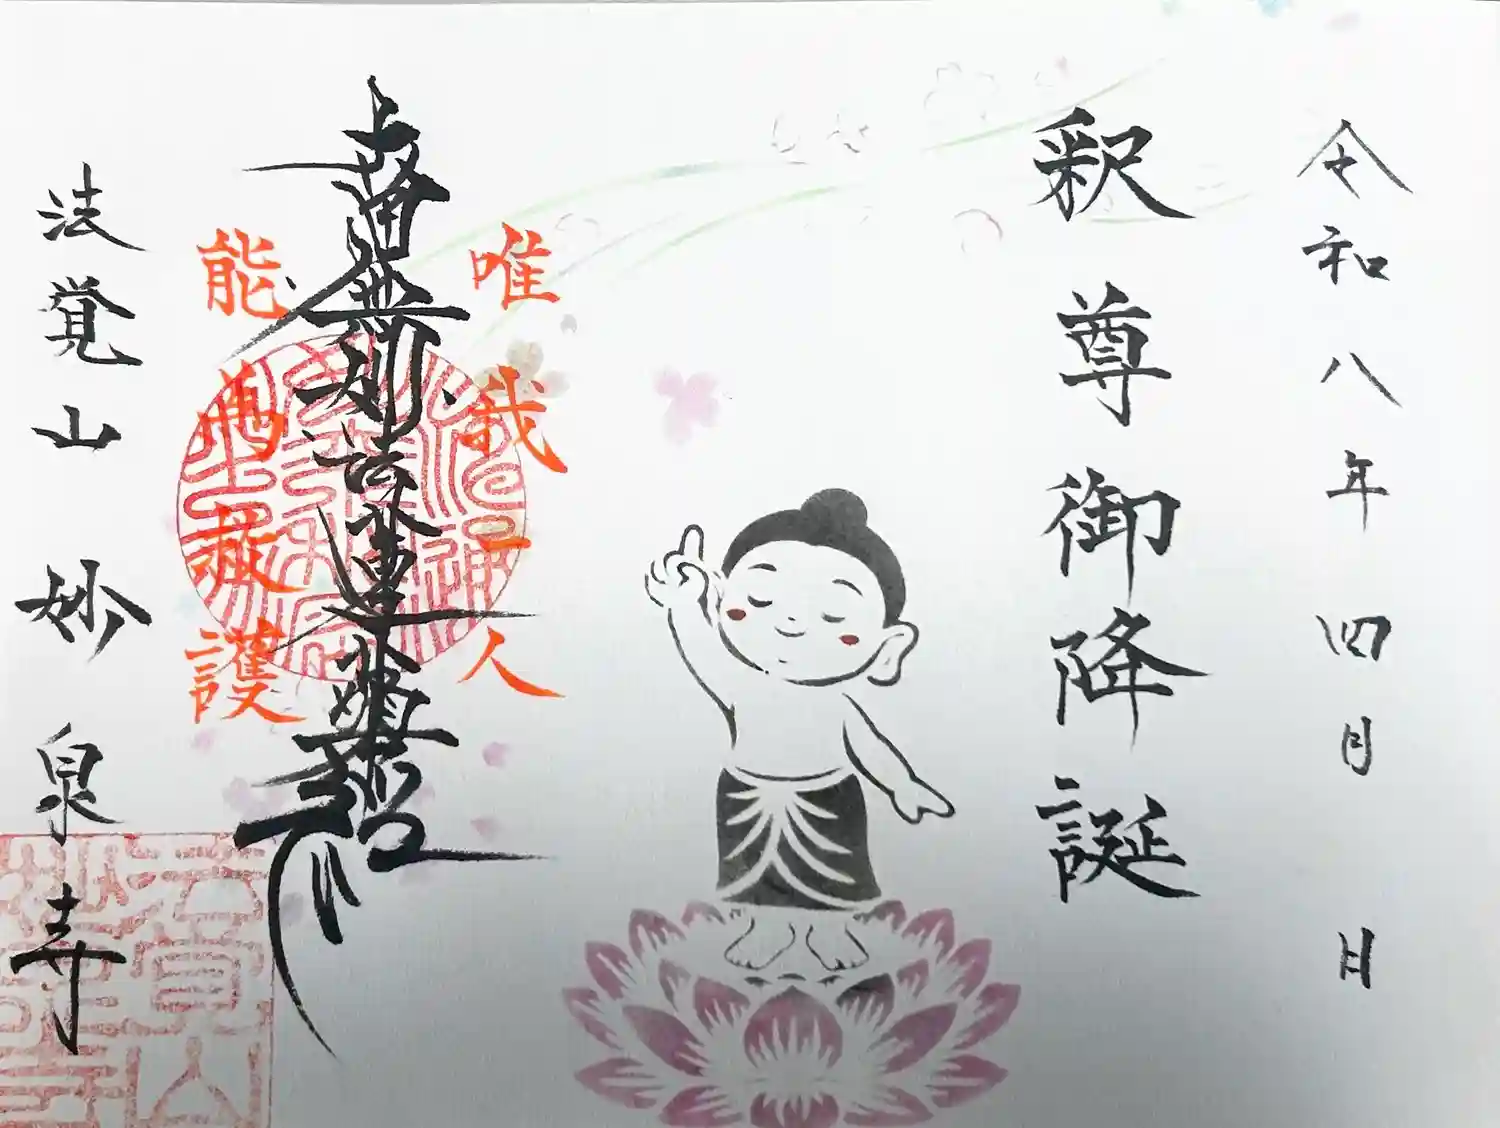 令和八年四月 日
釈尊御降誕
唯我一人
南無妙法蓮華経
能為救護
法覚山 妙泉寺